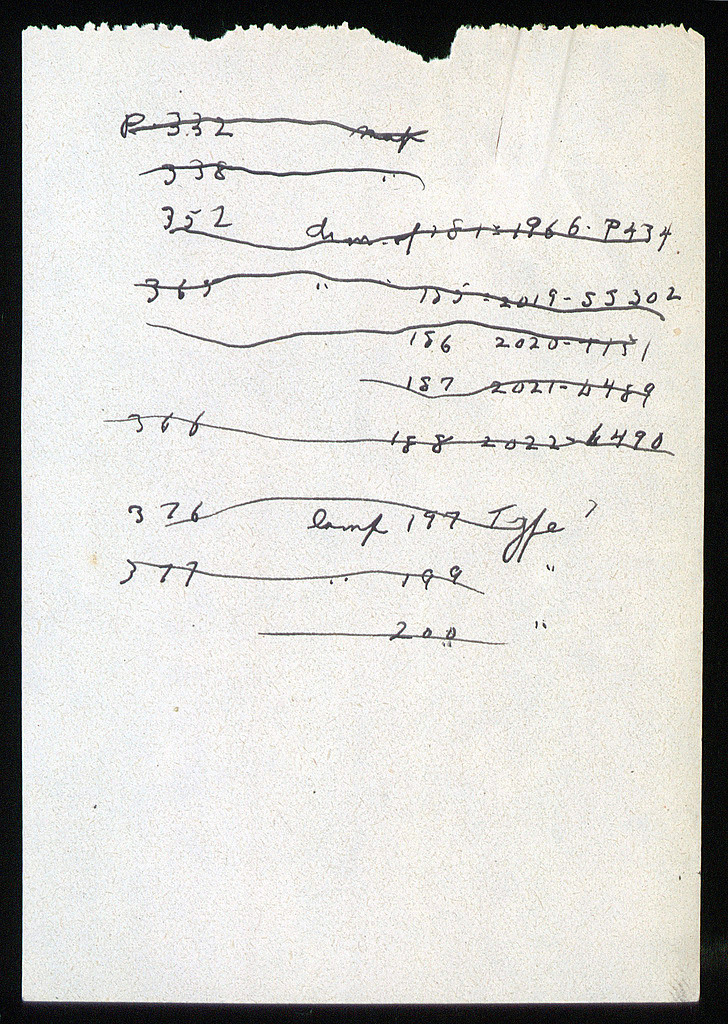 P. 332 map
338 "
352 dim. of 181 = 1966 - P434
365 " " 185 = 2019 - SS302
186 2020 - T151
187 2021 - L489
366 188 2022 - L490
376 lamp 197 Type ?
377 " 199 "
200 "